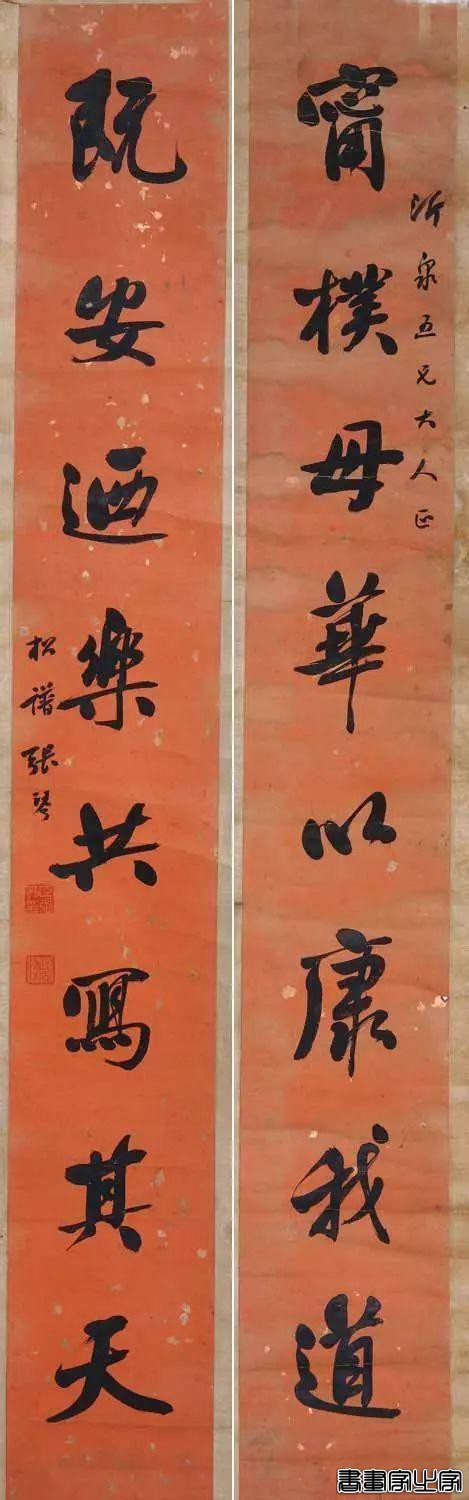 甯樸毋華以康我道
沂泉五兄大人正
既安迺樂共寫其天
松譜張琴
書畫家之家